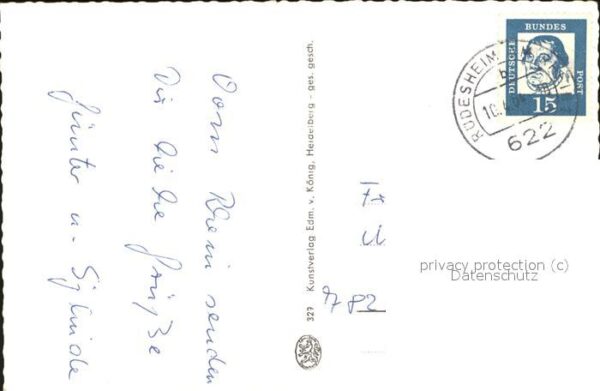 Vom Rhein senden
Dir die Grüße
Günter u. Siglinde
327 Kunstverlag Edm. v. König, Heidelberg - ges. gesch.
DEUTSCHE
BUNDES
POST
15
RÜDESHEIM
b
10.
622
privacy protection (c)
Datenschutz